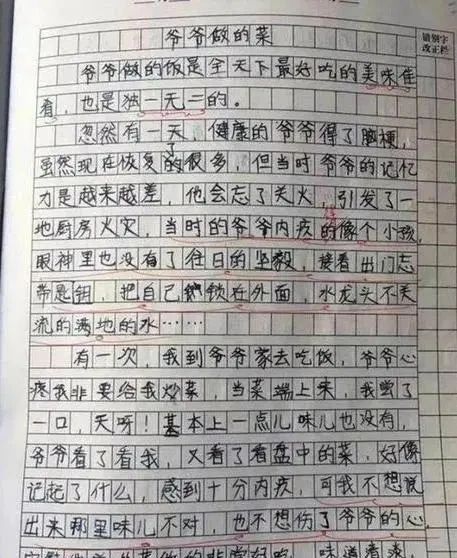 错别字
改正栏
爷爷做的菜
爷爷做的饭是全天下最好吃的美味佳
肴,也是独一无二的。
忽然有一天,健康的爷爷得了脑梗,
虽然现在恢复了很多,但当时爷爷的记忆
力是越来越差,他会忘了关火,引发了一
地厨房火灾,当时的爷爷内疚的像个小孩,
眼神里也没有了往日的坚毅,接着出门忘
带是钥,把自己锁在外面,水龙头不关
流的满地的水……
有一次,我到爷爷家去吃饭,爷爷心
疼我非要给我炒菜,当菜端上来,我尝了
一口,天呀!基本上一点儿味儿也没有,
爷爷看了看我,又看了看盘中的菜,好像
记起了什么,感到十分内疚,可我不想说
出来那里味儿不对,也不想伤了爷爷的心